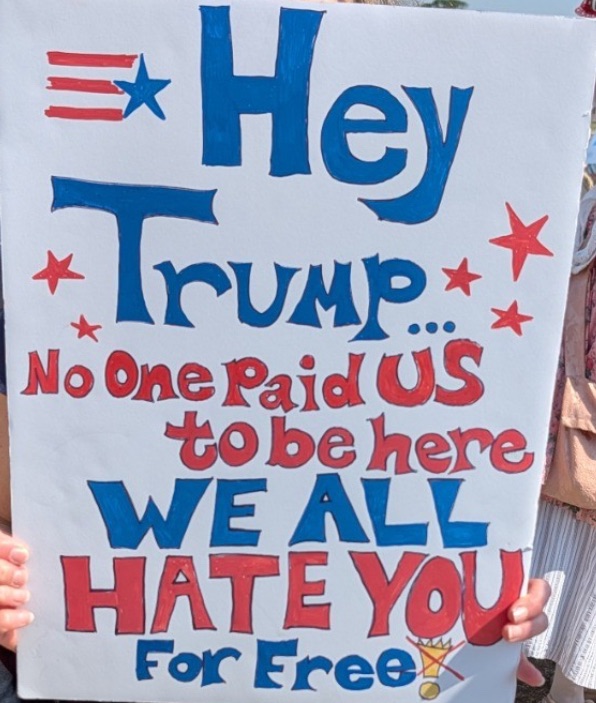 Hey
Trump...
No One Paid US
to be here
WE ALL
HATE YOU
For Free!